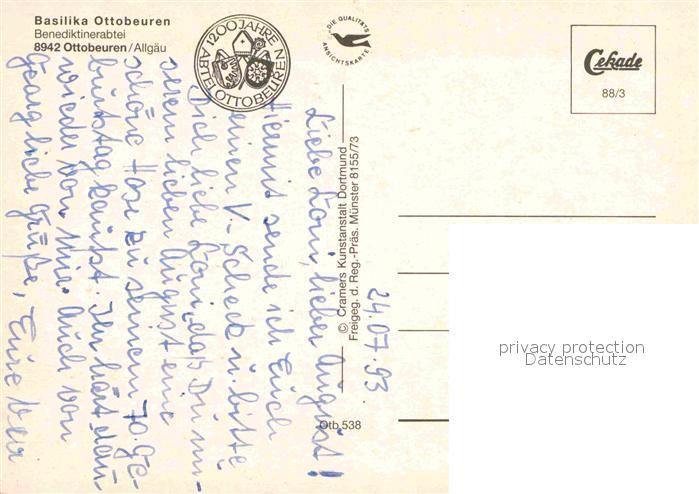 Basilika Ottobeuren
Benediktinerabtei
8942 Ottobeuren/Allgäu
1200 JAHRE
ABTEI OTTOBEUREN
DIE QUALITÄTS
ANSICHTSKARTE
Cekade
88/3
© Cramers Kunstanstalt Dortmund
Freigeg. d. Reg.-Präs. Münster 8155/73
Otb 538
24.07.93
Liebe Loni, lieber August!
Hiermit sende ich Euch
einen V-Scheck u. bitte
Dich liebe Loni, daß Du un-
serem lieben August eine
schöne Hose zu seinem 70. Ge-
burtstag kaufst. Ihr hört dann
wieder von mir. Auch von
Georg liebe Grüße, Eure
privacy protection
Datenschutz